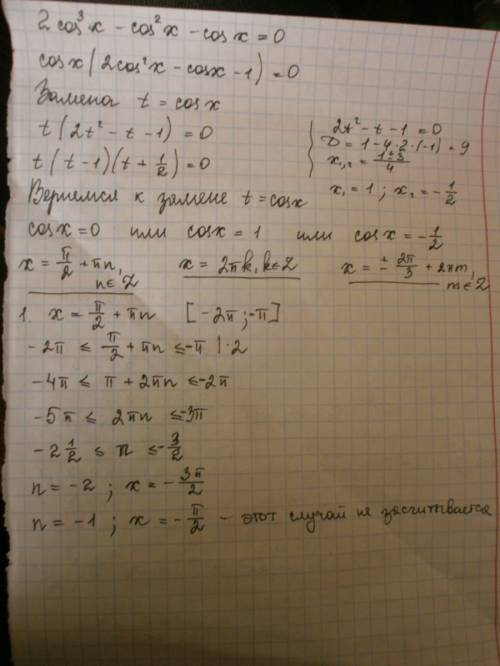 2cos³x - cos²x - cosx = 0
cosx(2cos²x - cosx - 1) = 0
Замена t = cosx
t(2t² - t - 1) = 0
t(t - 1)(t + 1/2) = 0
2t² - t - 1 = 0
D = 1 - 4·2·(-1) = 9
x₁,₂ = (1±3)/4
x₁ = 1; x₂ = -1/2
Вернемся к замене t = cosx
cosx = 0 или cosx = 1 или cosx = -1/2
x = π/2 + πn, n∈Z x = 2πk, k∈Z x = ± 2π/3 + 2πm, m∈Z
1. x = π/2 + πn [-2π; -π]
-2π ≤ π/2 + πn ≤ -π |·2
-4π ≤ π + 2πn ≤ -2π
-5π ≤ 2πn ≤ -3π
-2 1/2 ≤ n ≤ -3/2
n = -2; x = -3π/2
n = -1; x = -π/2 - этот случай не засчитывается